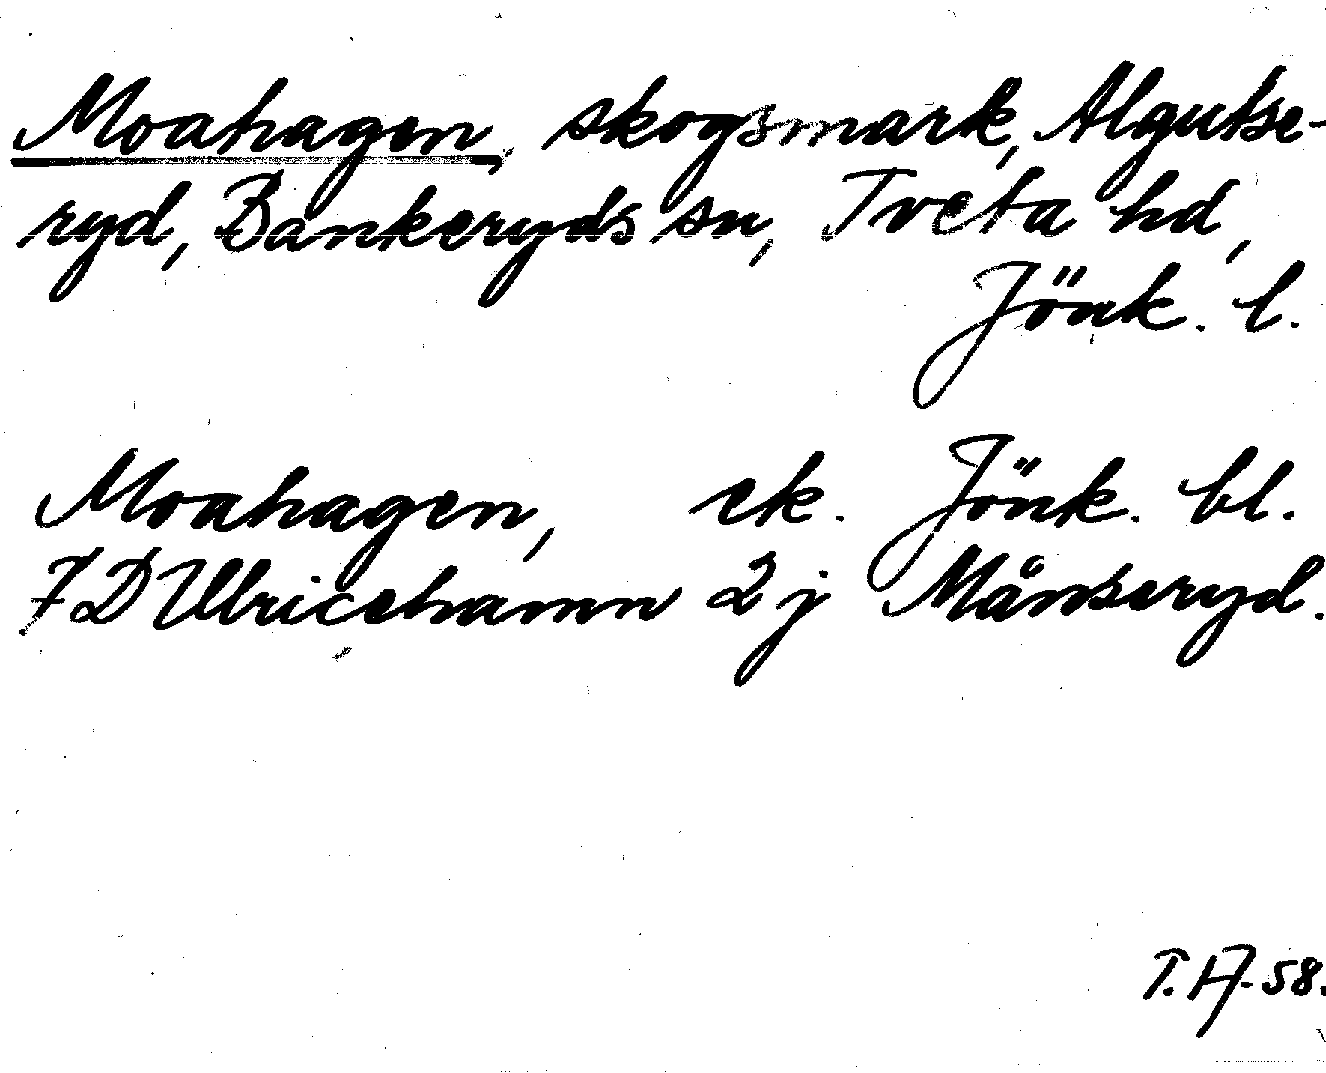 Moahagen, skogsmark, Algutse-
ryd, Bankeryds sn, Tveta hd,
Jönk. l.
Moahagen, ek. Jönk. bl.
7D Ulricehamn 2j Månseryd.
T.H-58.